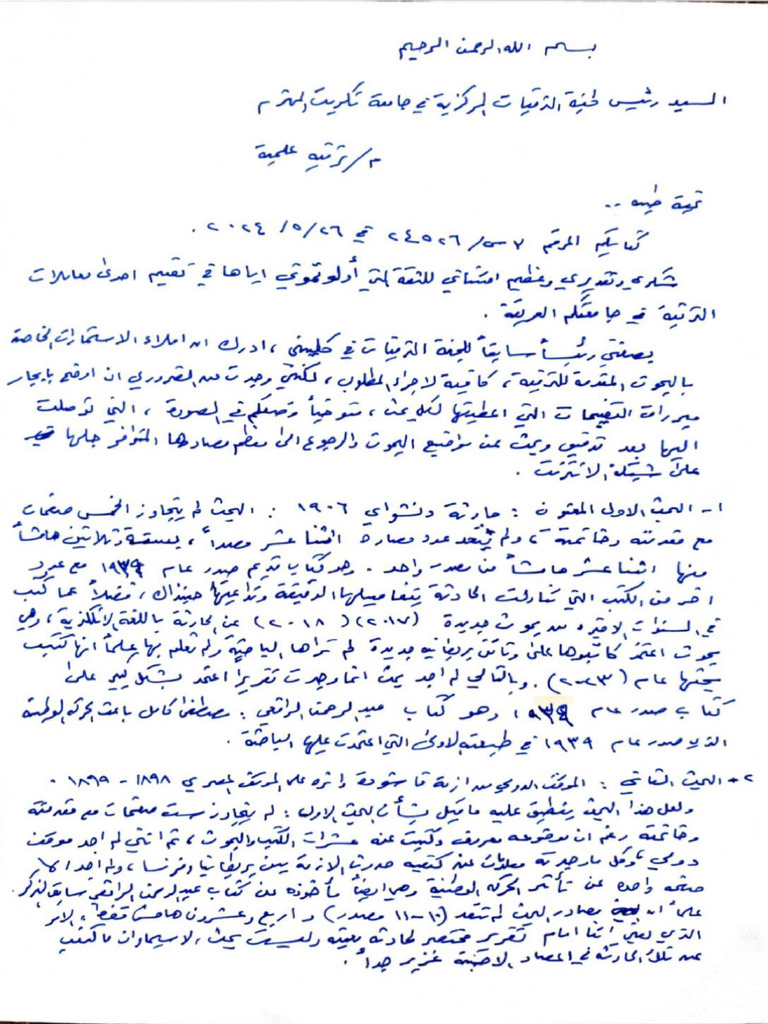 بسم الله الرحمن الرحيم
السيد رئيس لجنة الترقيات المركزية في جامعة تكريت المحترم
م/ ترقية علمية
تحية طيبة ..
كتابكم المرقم ٧ س/ ٢٤٥٢٦ في ٢٦/ ٥/ ٢٠٢٤ .
شكري وتقديري وعظيم امتناني للثقة التي أوليتموني اياها في تقييم احدى معاملات
الترقية في جامعتكم العريقة .
بصفتي رئيساً سابقاً للجنة الترقيات في كليتي ، ادرك ان املاء الاستمارات الخاصة
بالبحوث المقدمة للترقية ، كافية لاجراء المطلوب ، لكنني وجدت من الضروري ان اوضح بايجاز
مبررات التقييمات التي اعطيتها لكل بحث ، متوخياً وضعكم في الصورة ، التي توصلت
اليها بعد تدقيق وبحث عن مواضيع البحوث والرجوع الى معظم مصادرها المتوافر جلها
على شبكة الانترنت .
١- البحث الاول المعنون : حادثة دنشواي ١٩٠٦ : البحث لم يتجاوز الخمس صفحات
مع مقدمته وخاتمته ، ولم يتعد عدد مصادره اثنا عشر مصدراً ، بستة وثلاثين هامشاً
منها اثنا عشر هامشاً من مصدر واحد . وهو كتاب قديم صدر عام ١٩٣٩ مع عدد
اخر من الكتب التي تناولت الحادثة بتفاصيلها الدقيقة وتداعيتها حينذاك ، فضلاً عما كتب
في السنوات الاخيرة من بحوث جديدة (٢٠١٧) (٢٠١٨) عن الحادثة باللغة الانكلزية ، وهي
بحوث اعتمد كاتبوها على وثائق بريطانية جديدة لم تراها الباحثة ولم تعلم بها علماً انها كتبت
بحثها عام (٢٠٢٣) . وبالتالي لم اجد بحث انما وجدت تقريراً اعتمد بشكل كبير على
كتاب صدر عام ١٩٣٩ ، وهو كتاب عبد الرحمن الرافعي : مصطفى كامل باعث الحركة الوطنية
الذي صدر عام ١٩٣٩ في طبعته الاولى التي اعتمدت عليها الباحثة .
٢- البحث الثاني : الموقف الدولي من ازمة فاشودة واثره على الموقف المصري ١٨٩٨ - ١٨٩٩ .
ولعل هذا البحث ينطبق عليه ما قيل بشأن البحث الاول : لم يتجاوز ست صفحات مع مقدمته
وخاتمته رغم ان موضوعه معروف وكتبت عنه عشرات الكتب والبحوث ، ثم انني لم اجد موقف
دولي ، وكل ما وجدته معلومات عن كيفية حدوث الازمة بين بريطانيا وفرنسا ، ولم اجد الا
صفحة واحدة عن تأثير الحركة الوطنية وهي ايضاً مأخوذه من كتاب عبد الرحمن الرافعي سابق الذكر .
علماً ان مصادر البحث لم تتعد (١٠-١١ مصدر) و اربع وعشرون هامشاً فقط ، الامر
الذي يعني اننا امام تقرير مختصر لحادثة معينة وليست بحث ، لا سيما وان ما كتب
عن تلك الحادثة في المصادر الاجنبية غزير جداً .